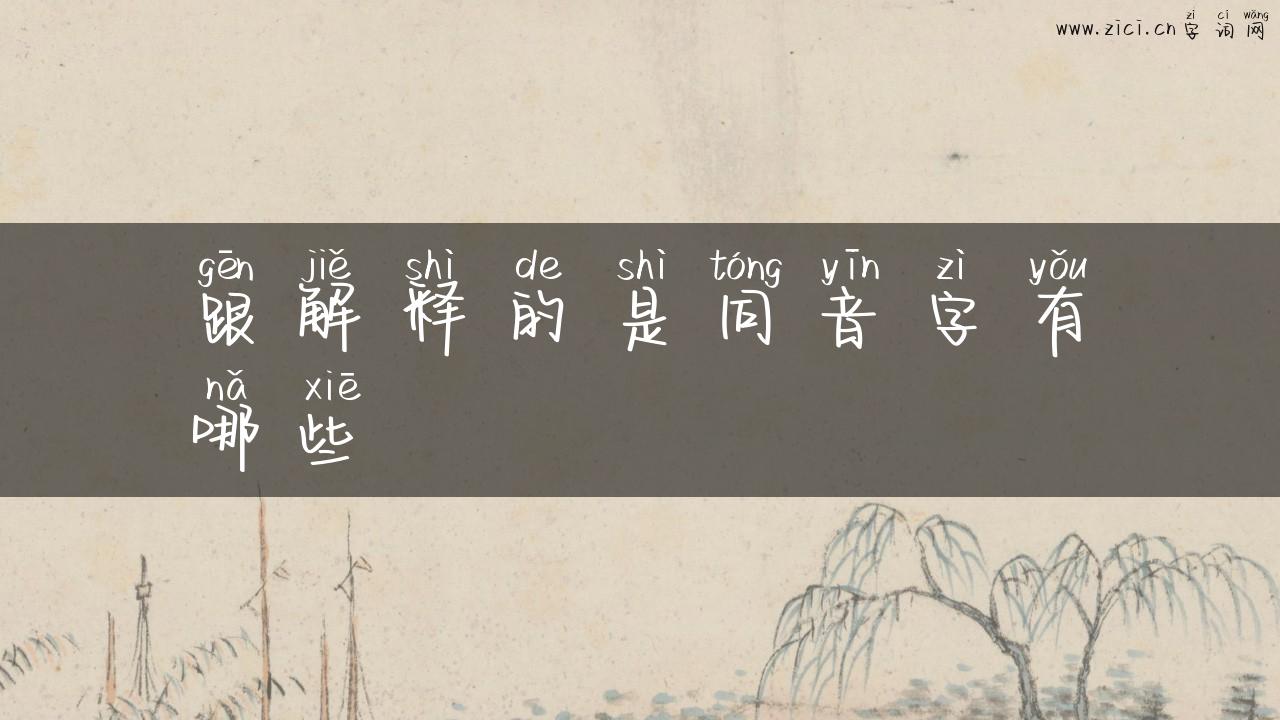 zì cí wǎng
www.zici.cn 字 词 网
gēn jiě shì de shì tóng yīn zì yǒu
跟 解 释 的 是 同 音 字 有
nǎ xiē
哪 些